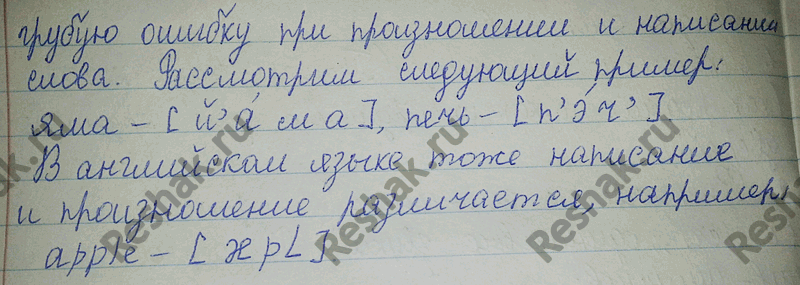 грубую ошибку при произношении и написании
слова. Рассмотрим следующий пример:
яма – [й'а́ м а], печь – [п'э́ч']
В английском языке тоже написание
и произношение различается, например,
apple – [æpL]
Reshak.ru
Reshak.ru
Reshak.ru
Reshak.ru
Reshak.ru
Reshak.ru